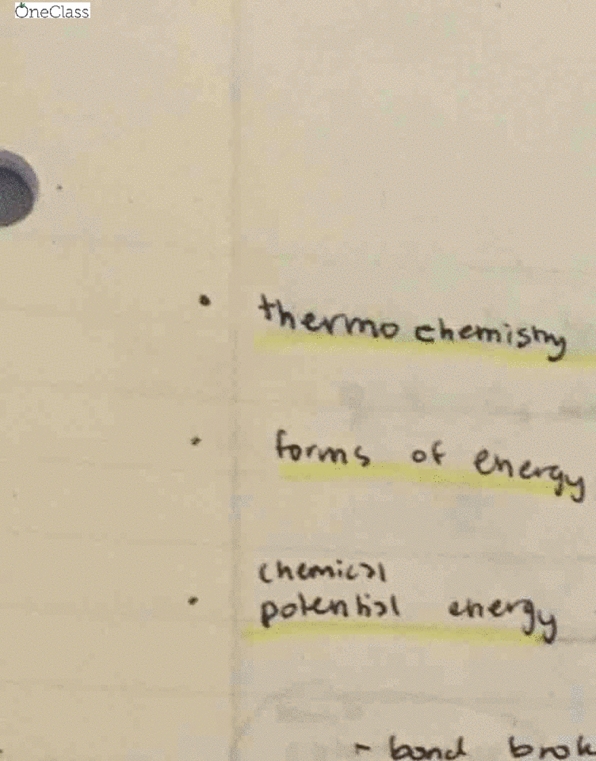 OneClass
• thermochemistry
• forms of energy
chemical
• potential energy
- bond